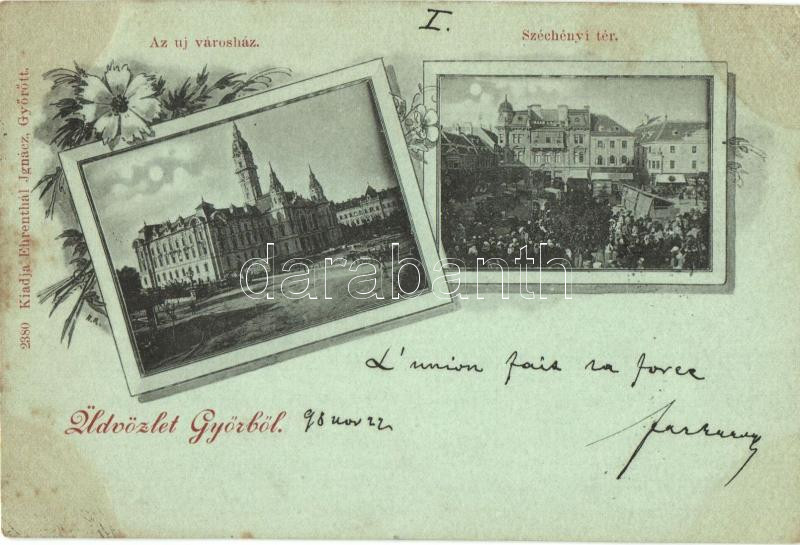 I.
Az uj városház.
Széchényi tér.
2380 Kiadja Ehrenthál Jgnácz, Győrött.
darabanth
L'union fait la force
Üdvözlet Győrből.
98 nov 22